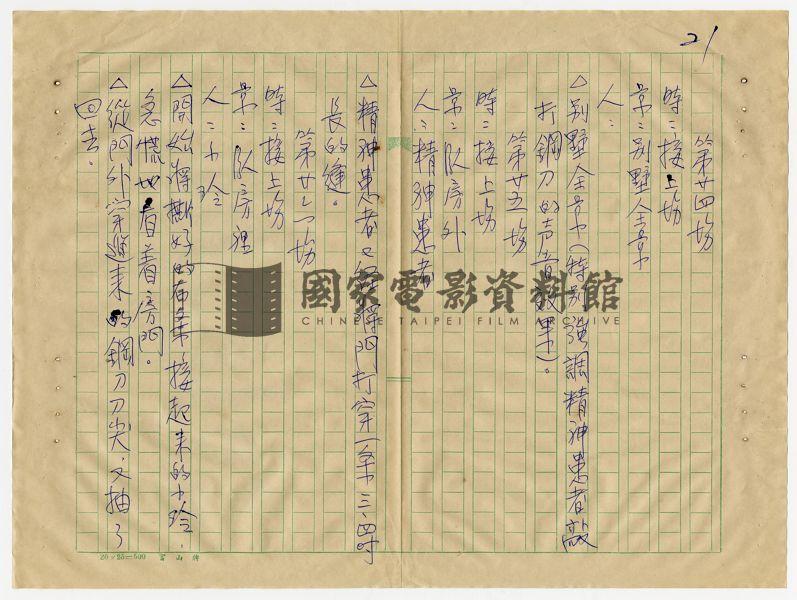 21
第廿四場
時：接上場
景：別墅全景
人：
△別墅全景(特別強調精神患者敲
打鋼刀的声音效果)。
第廿五場
時：接上場
景：臥房外
人：精神患者
△精神患者又將門打穿一条三、四吋
長的縫。
第廿六場
時：接上場
景：臥房裡
人：小玲
△開始將撕好的布条接起來的小玲，
急慌地看着房門。
△從門外穿進來的鋼刀刀尖，又抽了
回去。
國家電影資料館
CHINESE TAIPEI FILM ARCHIVE
20×25=500